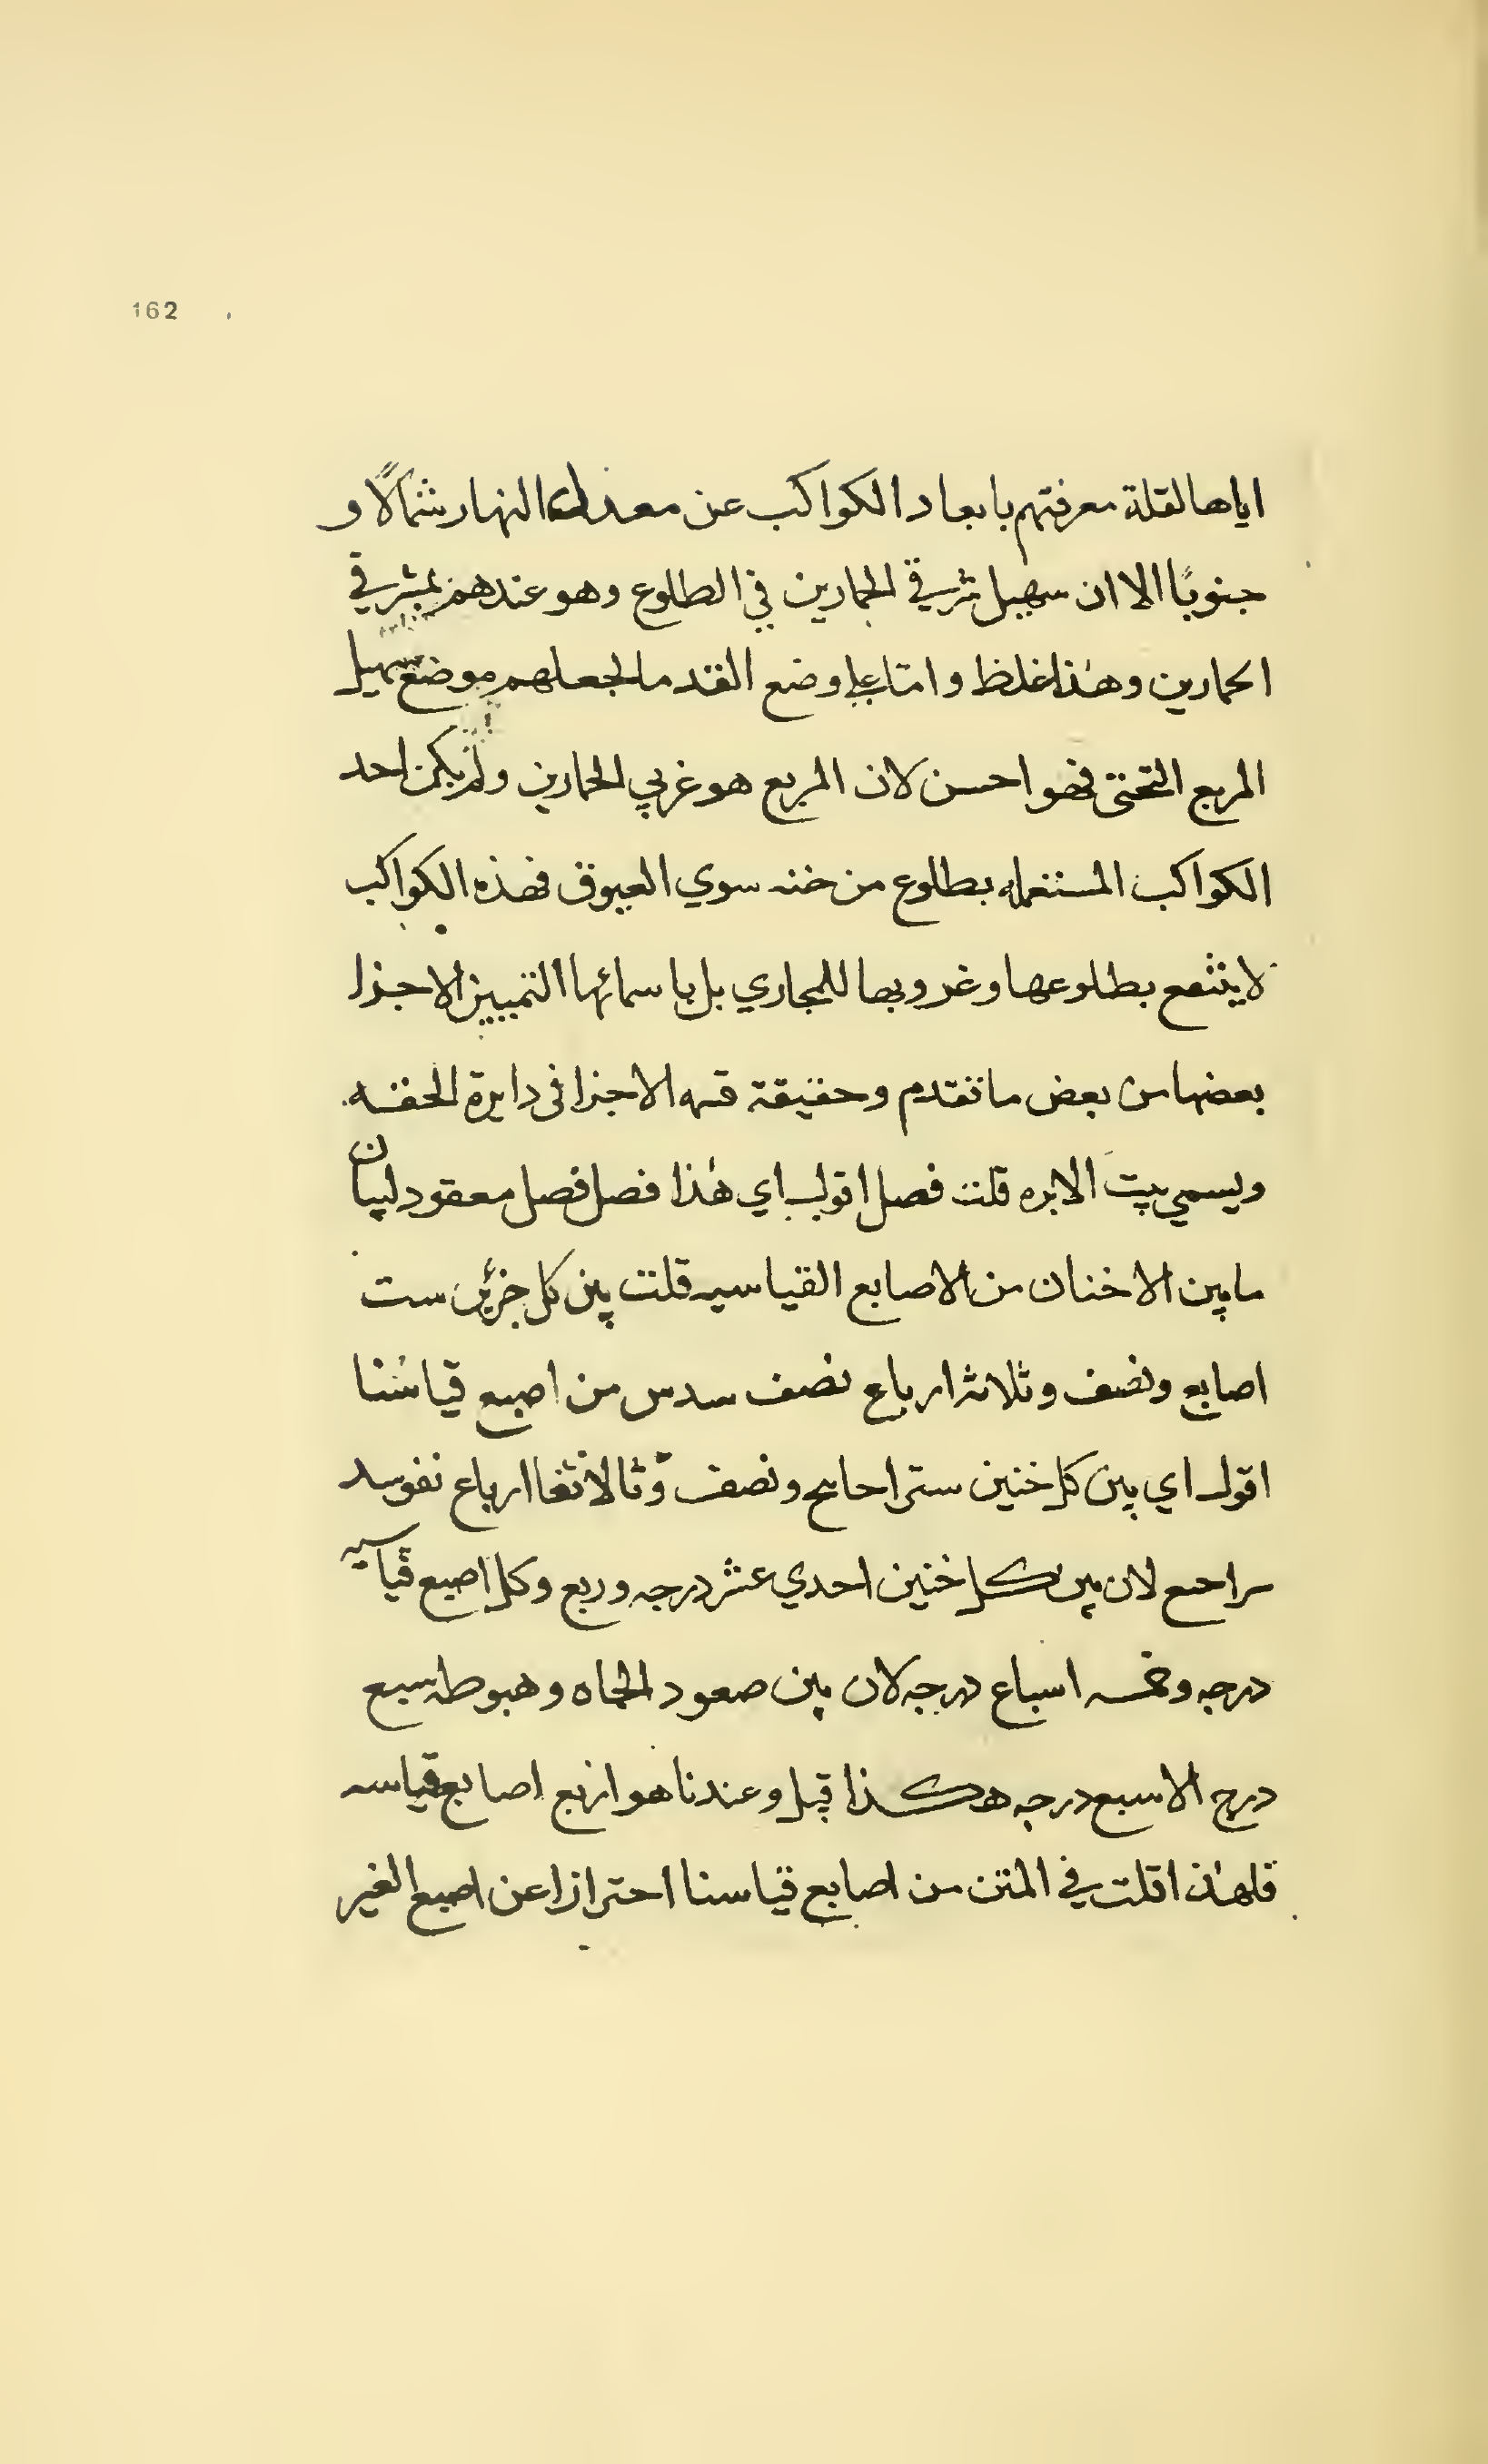 162
اياها لقلة معرفتهم بابعاد الكواكب عن معدل النهار شمالًا و
جنوبًا الا ان سهيل شرقي الحمارين في الطلوع وهو عندهم بمشرقي
الحمارين وهذا غلظ واما علي وضع القدما لجعلهم موضع سهيل
المربع التحتي فهو احسن لان المربع هو غربي الحمارين ولم يكن احد
الكواكب المستعمله بطلوع من خنه سوي العيوق فهذه الكواكب
لا ينتفع بطلوعها وغروبها للمجاري بل باسمائها التمييز الاجزا
بعضها من بعض ما تقدم وحقيقة قسمه الاجزا في دايرة الحقه
ويسمي بيت الابره قلت فصل اقول اي هذا فصل فصل معقود لبيان
ما بين الاخنان من الاصابع القياسيه قلت بين كل جزئين ست
اصابع ونصف وثلاثة ارباع نصف سدس من اصبع قياسنا
اقول اي بين كل خنين ست ونصف ارباع
لان بين كل خنين احدي عشر درجه وربع وكل اصبع قياسيه
درجه وخمسه اسباع درجه لان بين صعود الجاه وهبوطه سبع
درج الا سبع درجه هكذا قيل وعندنا هو اربع اصابع قياسه
فلهذا قلت في المتن من اصابع قياسنا احترازا عن اصبع الغير